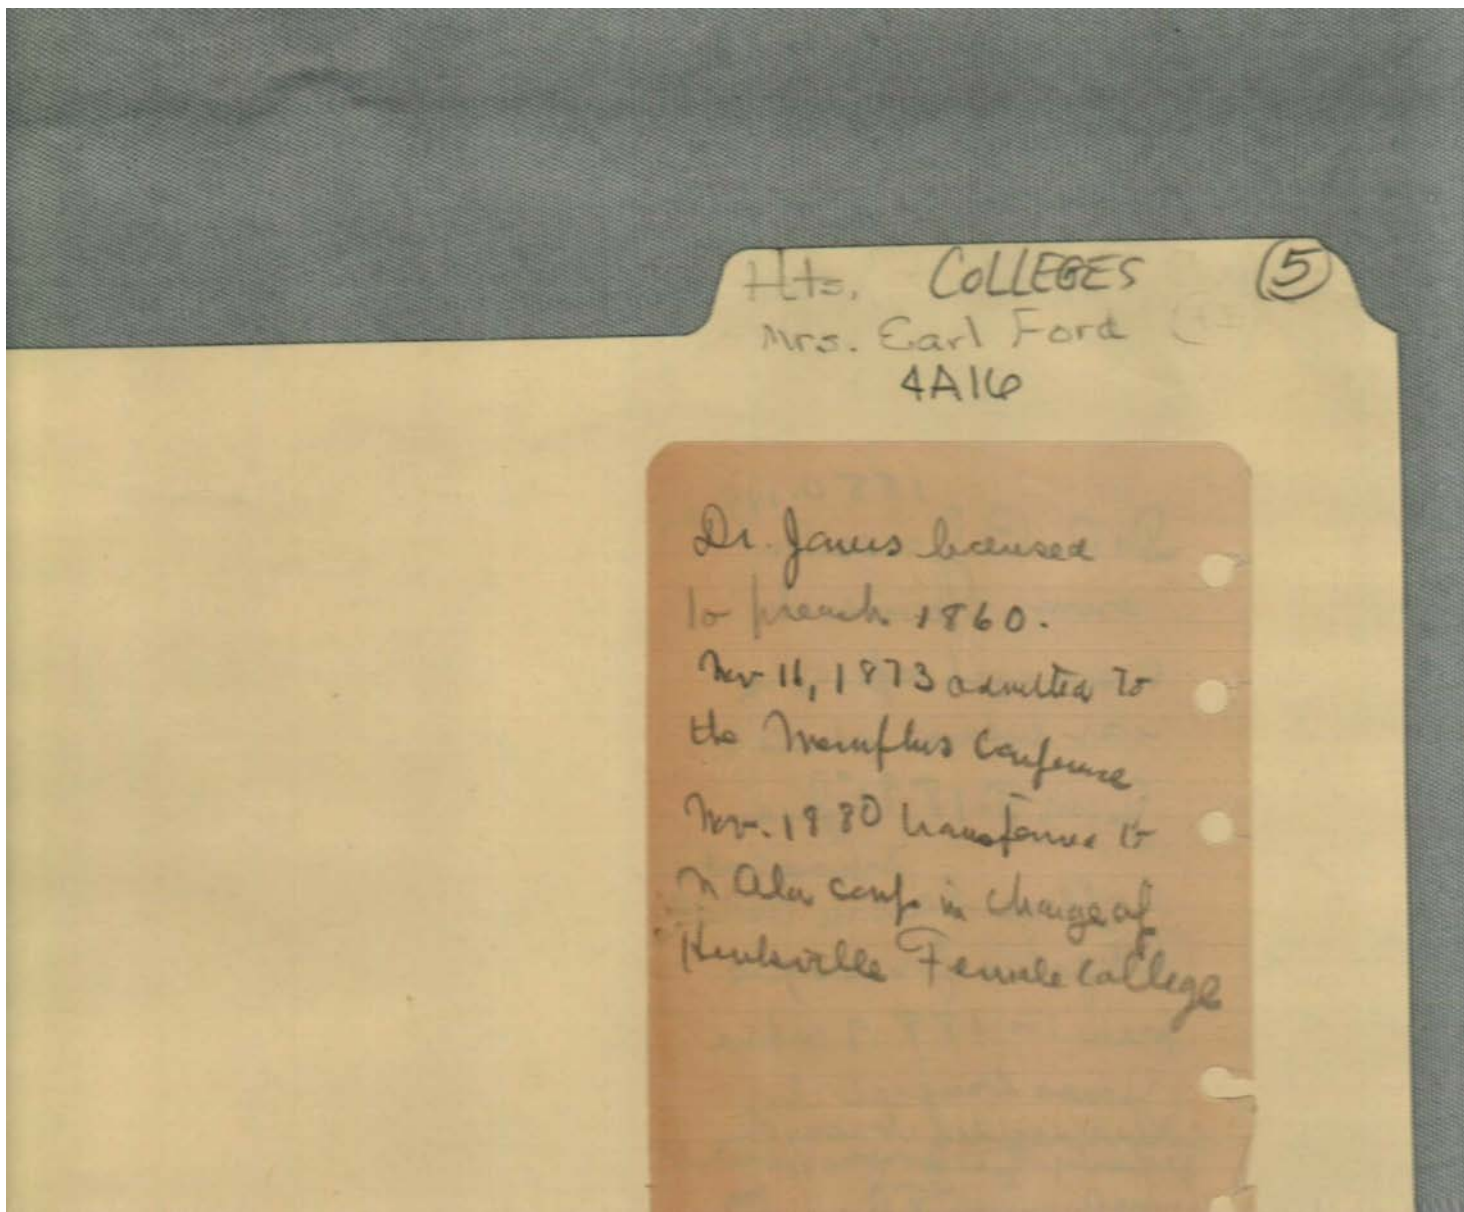 Hts. COLLEGES (5)
Mrs. Earl Ford
4A16
Dr. Jones licensed
to preach 1860.
Nov 16, 1873 admitted to
the Memphis Conference
Nov. 1880 transferred to
N Ala conf. in charge of
Huntsville Female College